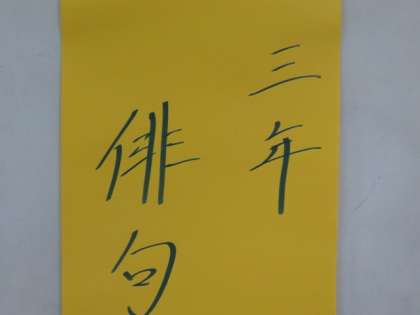 三年
俳句